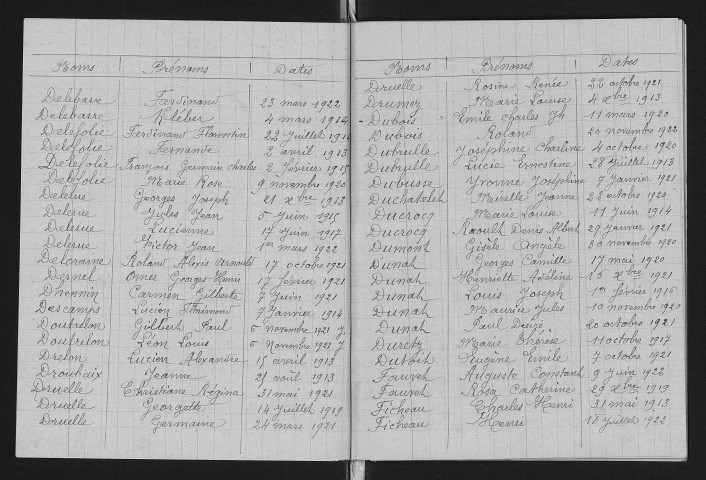 Noms Prénoms Dates
Delebarre Ferdinand 23 mars 1922
Delebarre Kléber 4 mars 1914
Delefolie Ferdinand Florentin 22 Juillet 1914
Delefolie Fernande 2 avril 1913
Delefolie François Germain Charles 2 février 1915
Delefolie Marie Rose 9 novembre 1920
Delerue Georges Joseph 21 Xbre 1913
Delerue Jules Jean 5 Juin 1915
Delerue Lucienne 17 Juin 1917
Delerue Victor Jean 1er mars 1922
Delcraine Roland Alexis Arnould 17 octobre 1921
Dernel Omer Georges Henri 17 février 1921
Dhennin Carmen Gilberte 7 Juin 1921
Descamps Lucien Florimond 7 Janvier 1914
Doutrelon Gilbert Paul 6 Novembre 1921 J.
Doutrelon Léon Louis 6 Novembre 1921 J
Drelon Lucien Alexandre 15 avril 1913
Droubaix Jeanne 21 août 1913
Druelle Christiane Régina 31 mai 1921
Druelle Georgette 14 Juillet 1919
Druelle Germaine 24 mars 1921
Noms Prénoms Dates
Druelle Rosine Renée 22 octobre 1921
Drumez Marie Louise 4 Xbre 1913
- Dubois Emile Charles Jh 11 mars 1920
Dubois Roland 20 novembre 1922
Dubrulle Joséphine Charline 4 octobre 1920
Dubrulle Lucie Ernestine 28 Juillet 1913
Dubusse Yvonne Joséphine 7 Janvier 1921
Duchatelet Mireille Jeanne 22 octobre 1920
Ducrocq Marie Louise 11 Juin 1914
Ducrocq Raoult Denis Albert 29 Janvier 1921
Dumont Gisèle Angèle 30 novembre 1920
Dunah Georges Camille 17 mai 1920
Dunah Henriette Adeline 16 Xbre 1921
Dunah Louis Joseph 1er février 1916
Dunah Maurice Jules 10 novembre 1920
Dunah Paul 20 octobre 1921
Duretz Marie Thérèse 11 octobre 1917
Dutoit Eugène Emile 7 octobre 1921
Fauvet Auguste Constant 9 Juin 1922
Fauvet Rosa Catherine 29 Xbre 1919
Ficheau Charles Henri 31 mai 1913
Ficheau Henri 18 Juillet 1922